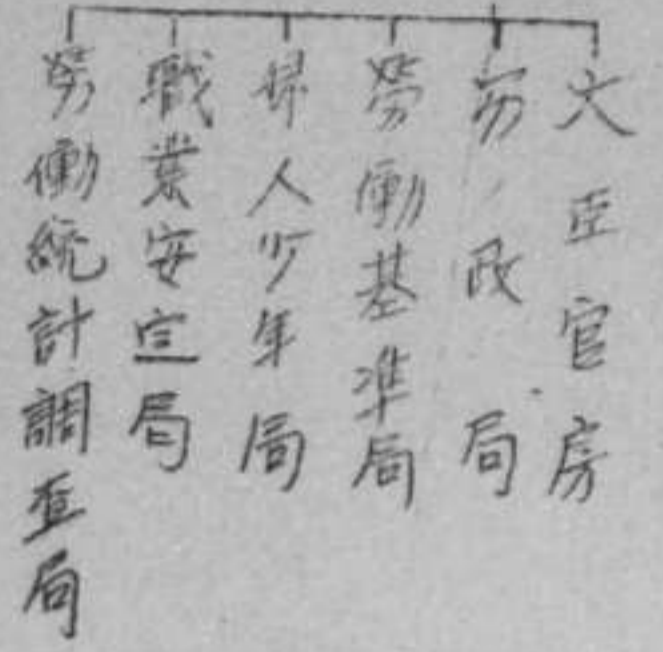 大臣官房
労政局
労働基準局
婦人少年局
職業安定局
労働統計調査局